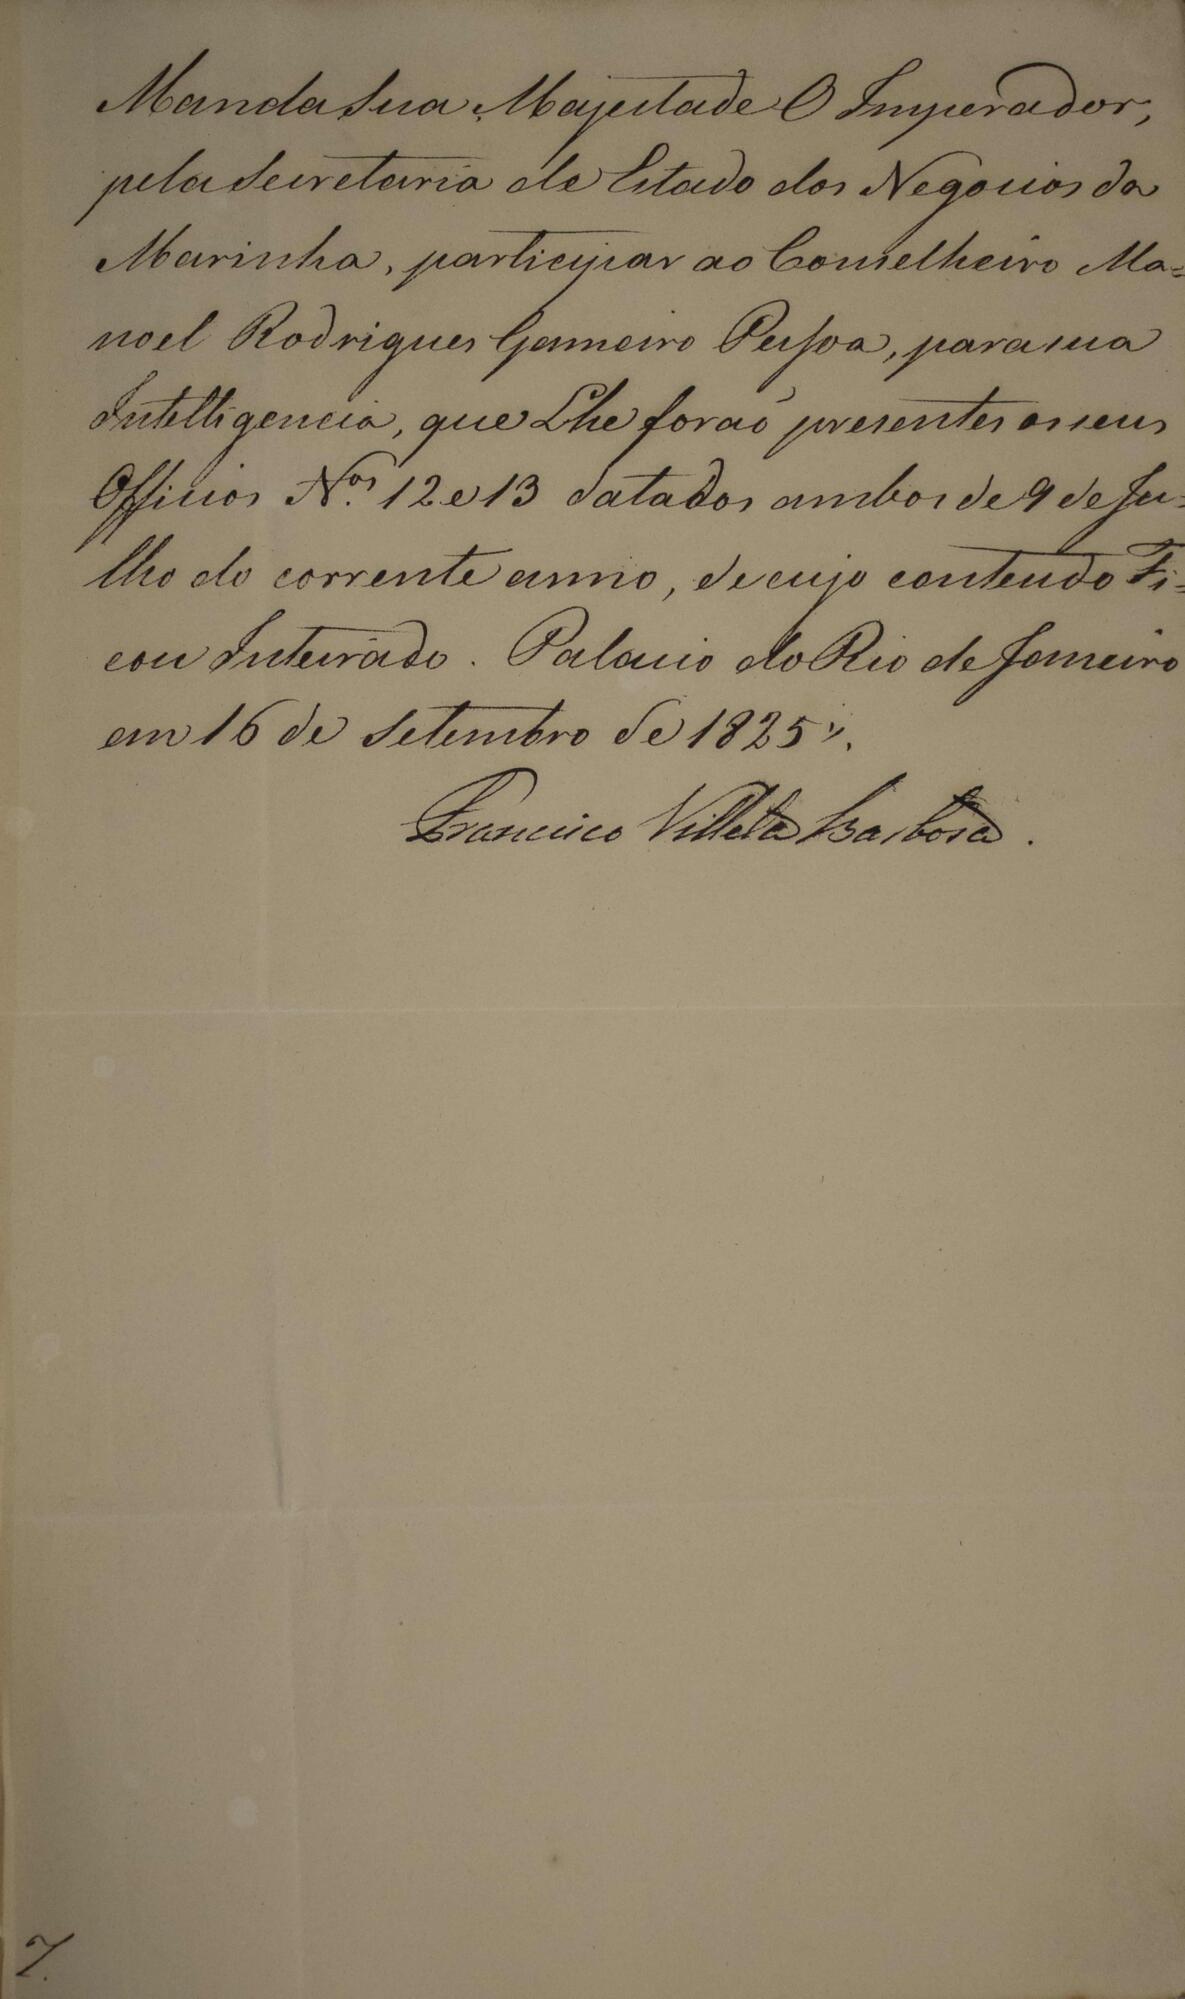 Manda Sua Majestade O Imperador,
pela Secretaria de Estado dos Negocios da
Marinha, participar ao Conselheiro Ma=
noel Rodrigues Gameiro Pessoa, para sua
Intelligencia, que Lhe foraõ presentes os seus
Officios N.os 12 e 13 datados ambos de 9 de Ju=
lho do corrente anno, de cujo conteudo Fi=
cou Inteirado. Palacio do Rio de Janeiro
em 16 de Setembro de 1825 „.
Francisco Villela Barbosa.
7.